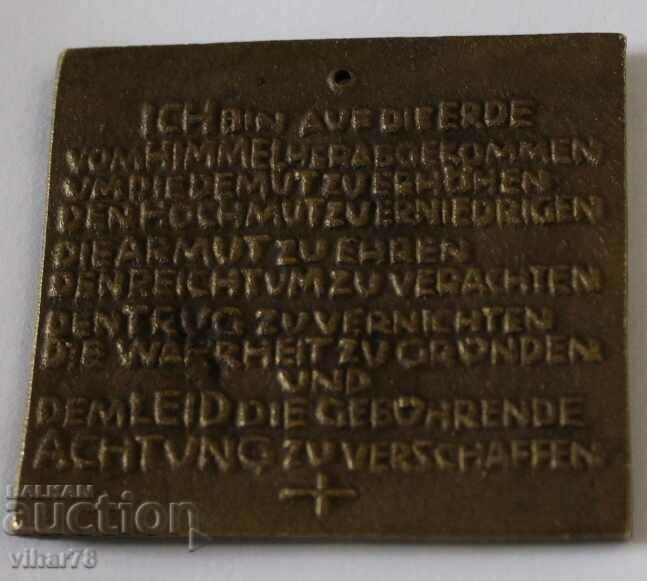 ICH BIN AUF DIE ERDE
VOM HIMMEL HERABGEKOMMEN
UM DIE DEMUT ZU ERHÖHEN
DEN HOCHMUT ZU ERNIEDRIGEN
DIE ARMUT ZU EHREN
DEN REICHTUM ZU VERACHTEN
DEN TRUG ZU VERNICHTEN
DIE WAHRHEIT ZU GRÜNDEN
UND
DEM LEID DIE GEBÜHRENDE
ACHTUNG ZU VERSCHAFFEN
BALKAN
auction
vihar78